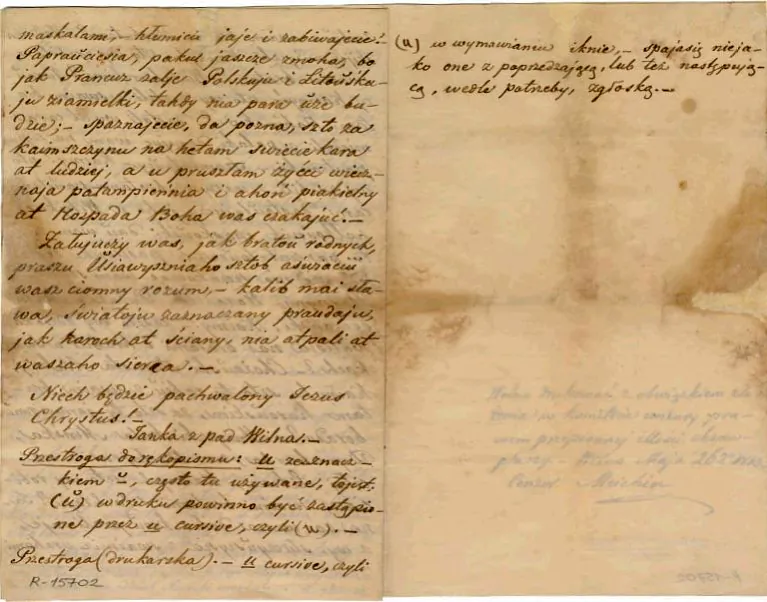 maskalami, – kłumicie jaje i zabiwajecie!
Papraŭciesia, pakul jaszcze zmoha, bo
jak Prancuz zalje Polskuju i Litoŭska-
ju ziamielki, tahdy nia para uże bu-
dzie; – spaznajecie, da pozna, szto za
kaimszczynu na hetam świecie kara
at ludziej, a u prusztam życci wiecz-
naja patampieńnia i ahoń piakielny
at Hospada Boha was czakajuć. –
Żałujuczy was, jak bratoŭ rodnych,
praszu Usiawyszniaho sztob aświaciŭ
wasz ciomny rozum, – kalib mai sło-
wa, światoju zaznaczany praudaju,
jak haroch at ściany, nia atpali at
waszaho sierca. –
Niech będzie pachwalony Jezus
Chrystus! –
Janka z pad Wilna. –
Przestroga do rękopismu: u ze znacz-
kiem ˘, często tu używane, to jest:
(ŭ) w druku powinno być zastąpio-
ne przez u cursive, czyli (u). –
Przestroga (drukarska). – u cursive, czyli
R-15702
(u) w wymawianiu iknie, – spaja się nieja-
ko one z poprzedzającą, lub też następują-
cą, wedle potrzeby, zgłoską. –